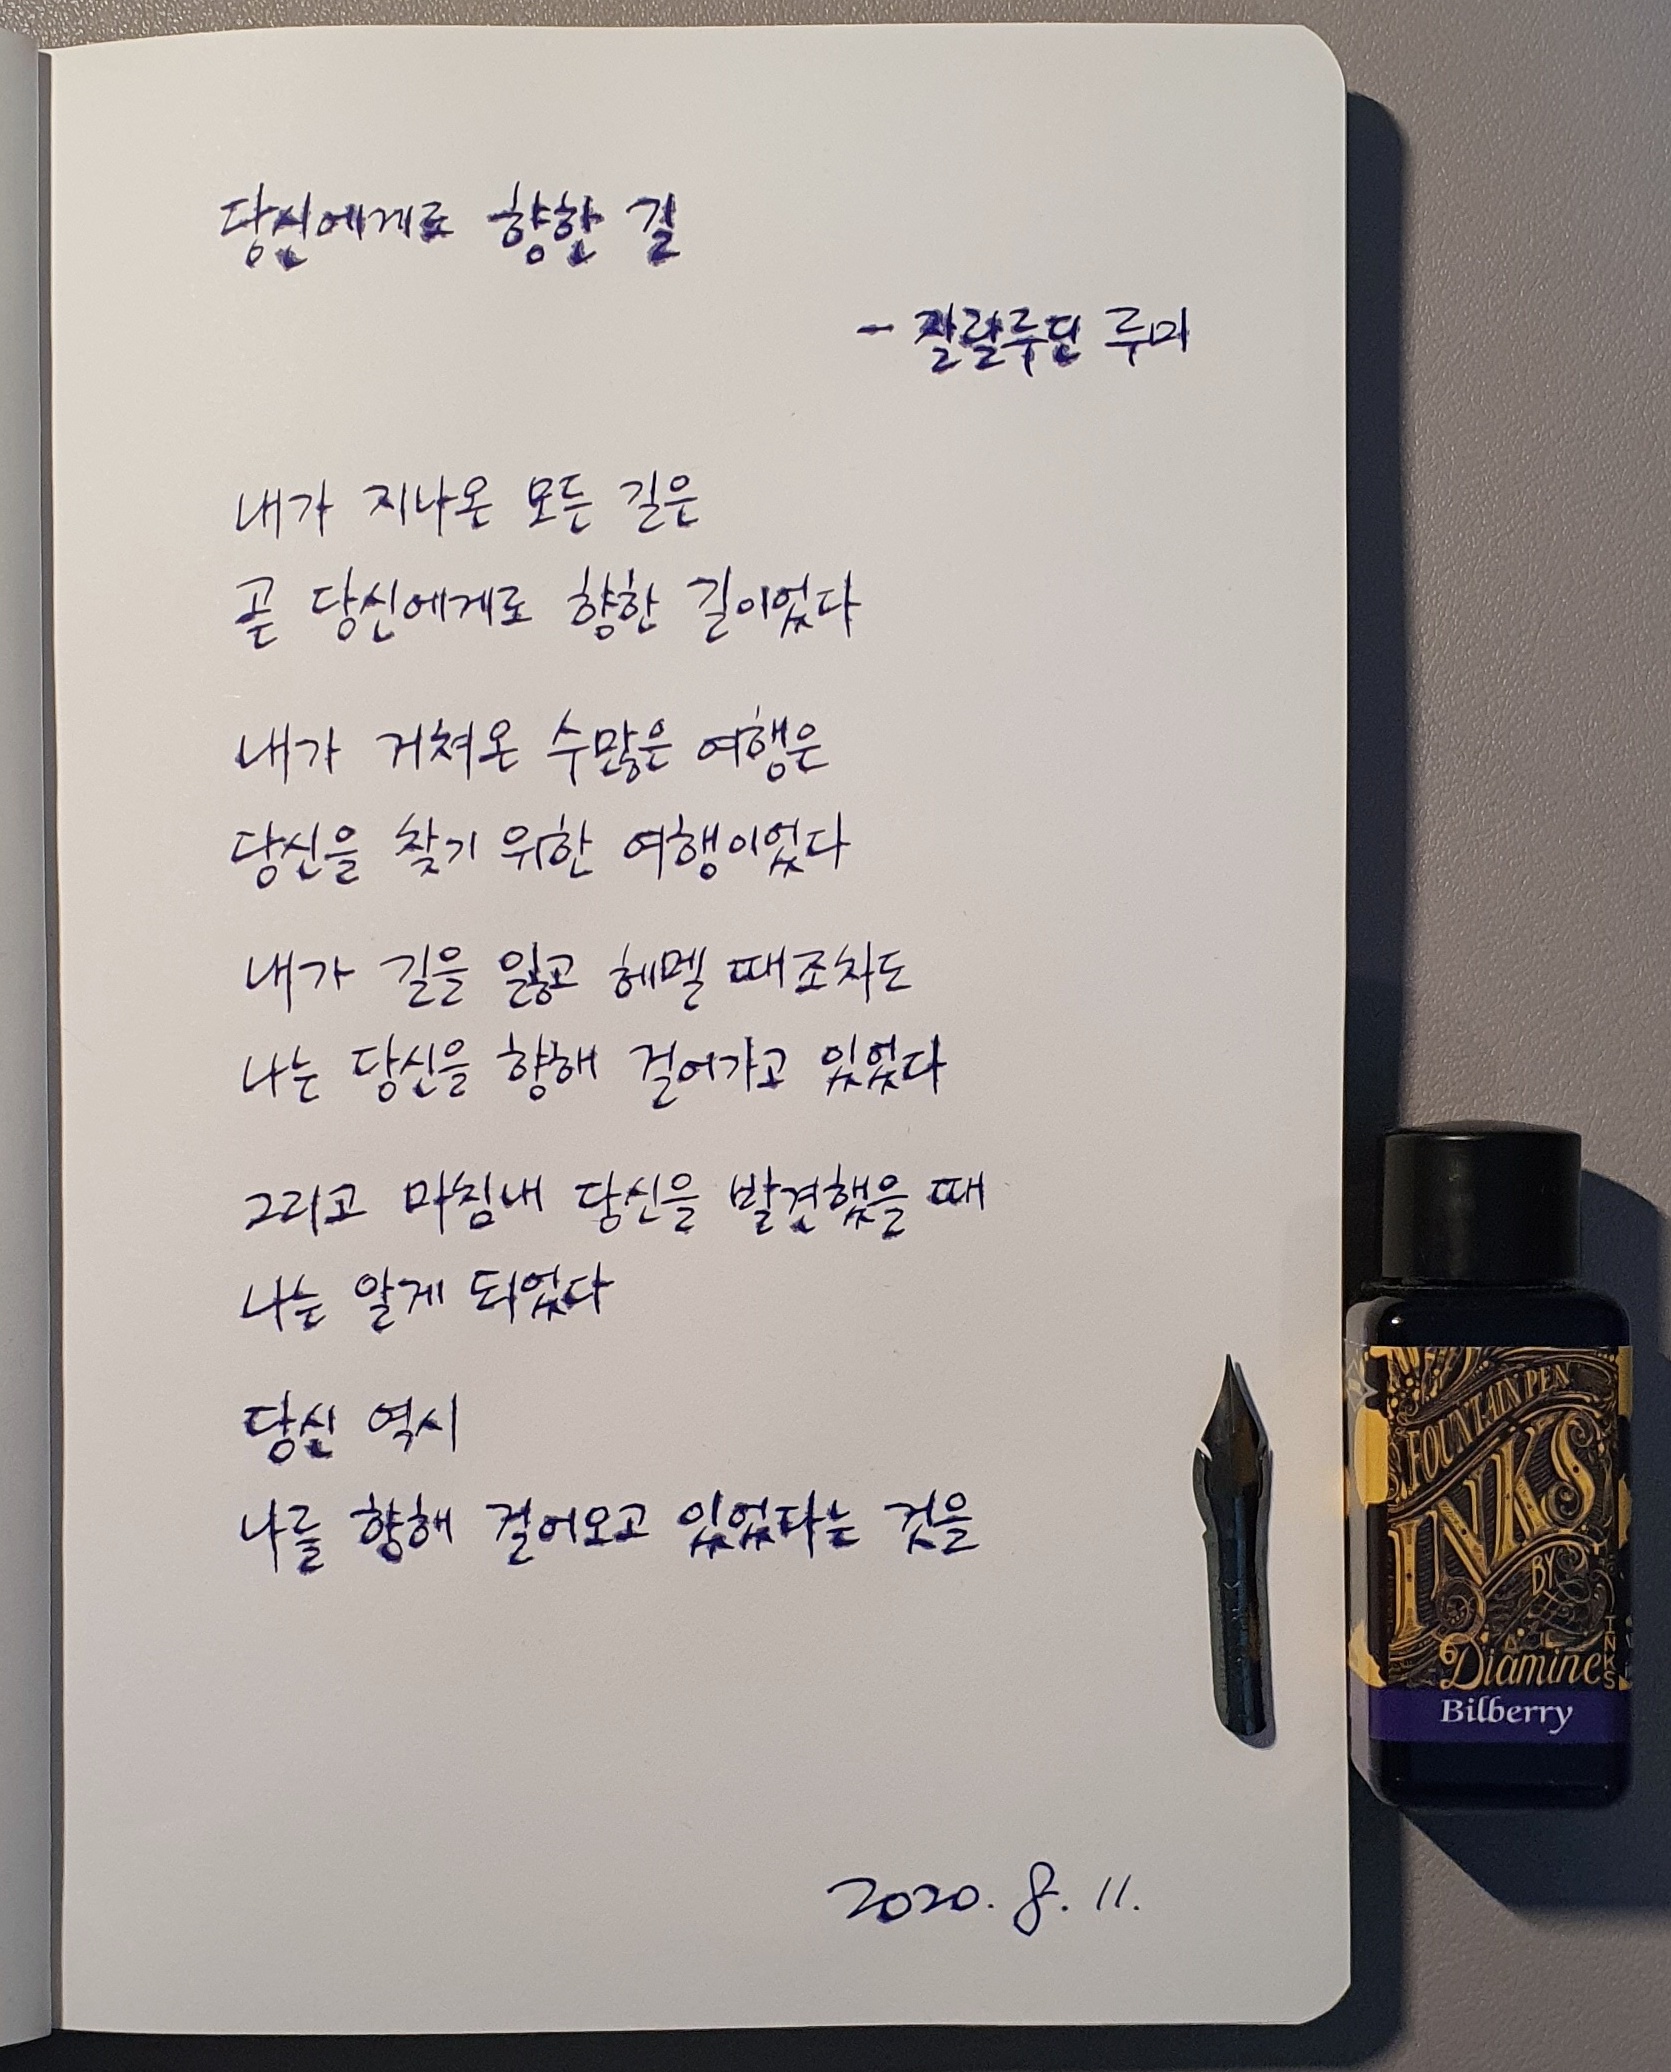 당신에게로 향한 길
- 잘랄루딘 루미
내가 지나온 모든 길은
곧 당신에게로 향한 길이었다
내가 거쳐온 수많은 여행은
당신을 찾기 위한 여행이었다
내가 길을 잃고 헤멜 때조차도
나는 당신을 향해 걸어가고 있었다
그리고 마침내 당신을 발견했을 때
나는 알게 되었다
당신 역시
나를 향해 걸어오고 있었다는 것을
2020. 8. 11.
FOUNTAIN PEN
INKS
BY
Diamine
Bilberry
INKS